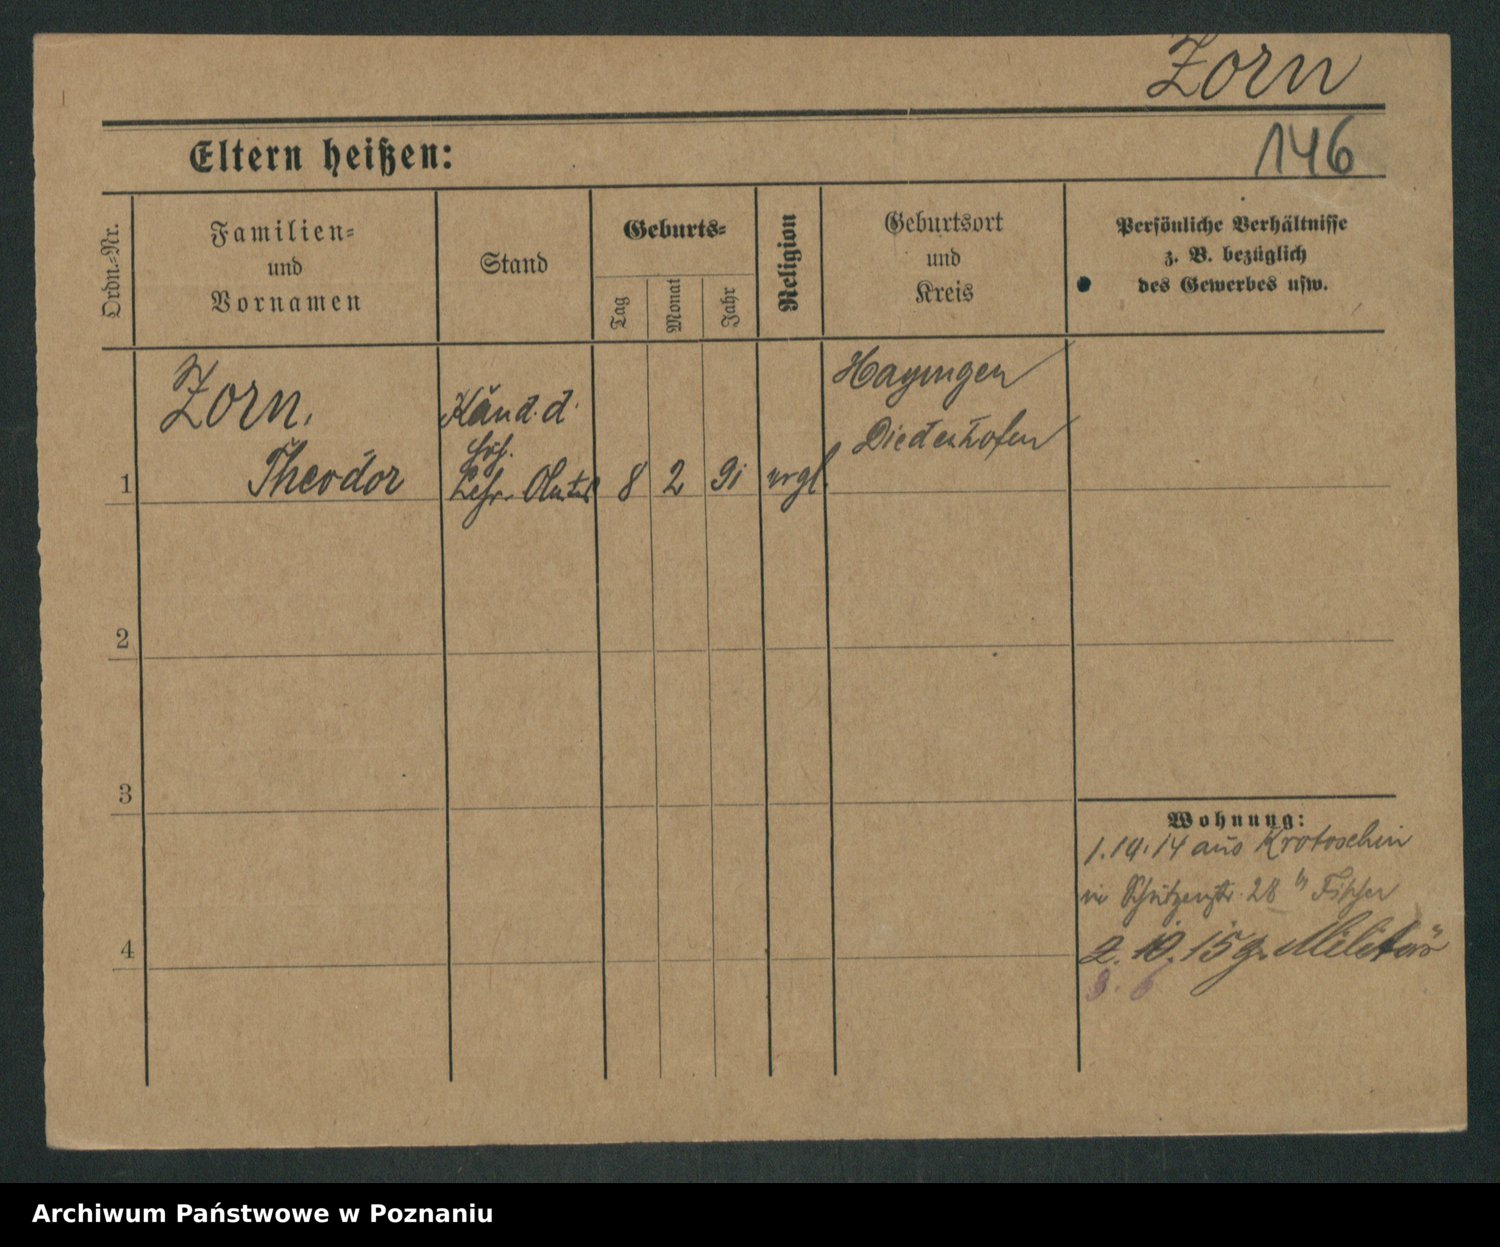 Zorn
146
Eltern heißen:
Ordn.-Nr.
Familien-
und
Vornamen
Stand
Geburts-
Tag
Monat
Jahr
Religion
Geburtsort
und
Kreis
Persönliche Verhältnisse
z. B. bezüglich
des Gewerbes usw.
1
Zorn,
Theodor
Kand. d.
höh.
Lehr-
8
2
91
Hayingen
Diedenhofen
2
3
4
Wohnung:
1.10.14 aus Krotoschin
in Schützenstr. 28 b Fischer
2.10.15 z. Militär
3. 6